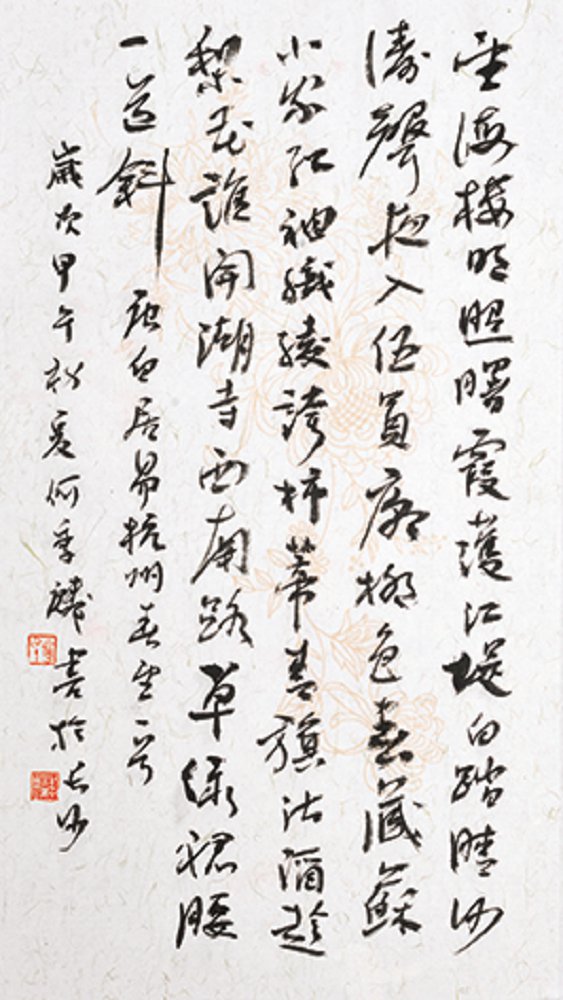 望海樓明照曙霞護江堤白踏晴沙
濤聲夜入伍員廟柳色春藏蘇
小家紅袖織綾誇柿蒂青旗沽酒趁
梨花誰開湖寺西南路草綠裙腰
一道斜 唐白居易杭州春望一首
歲次甲午初夏何季書於長沙